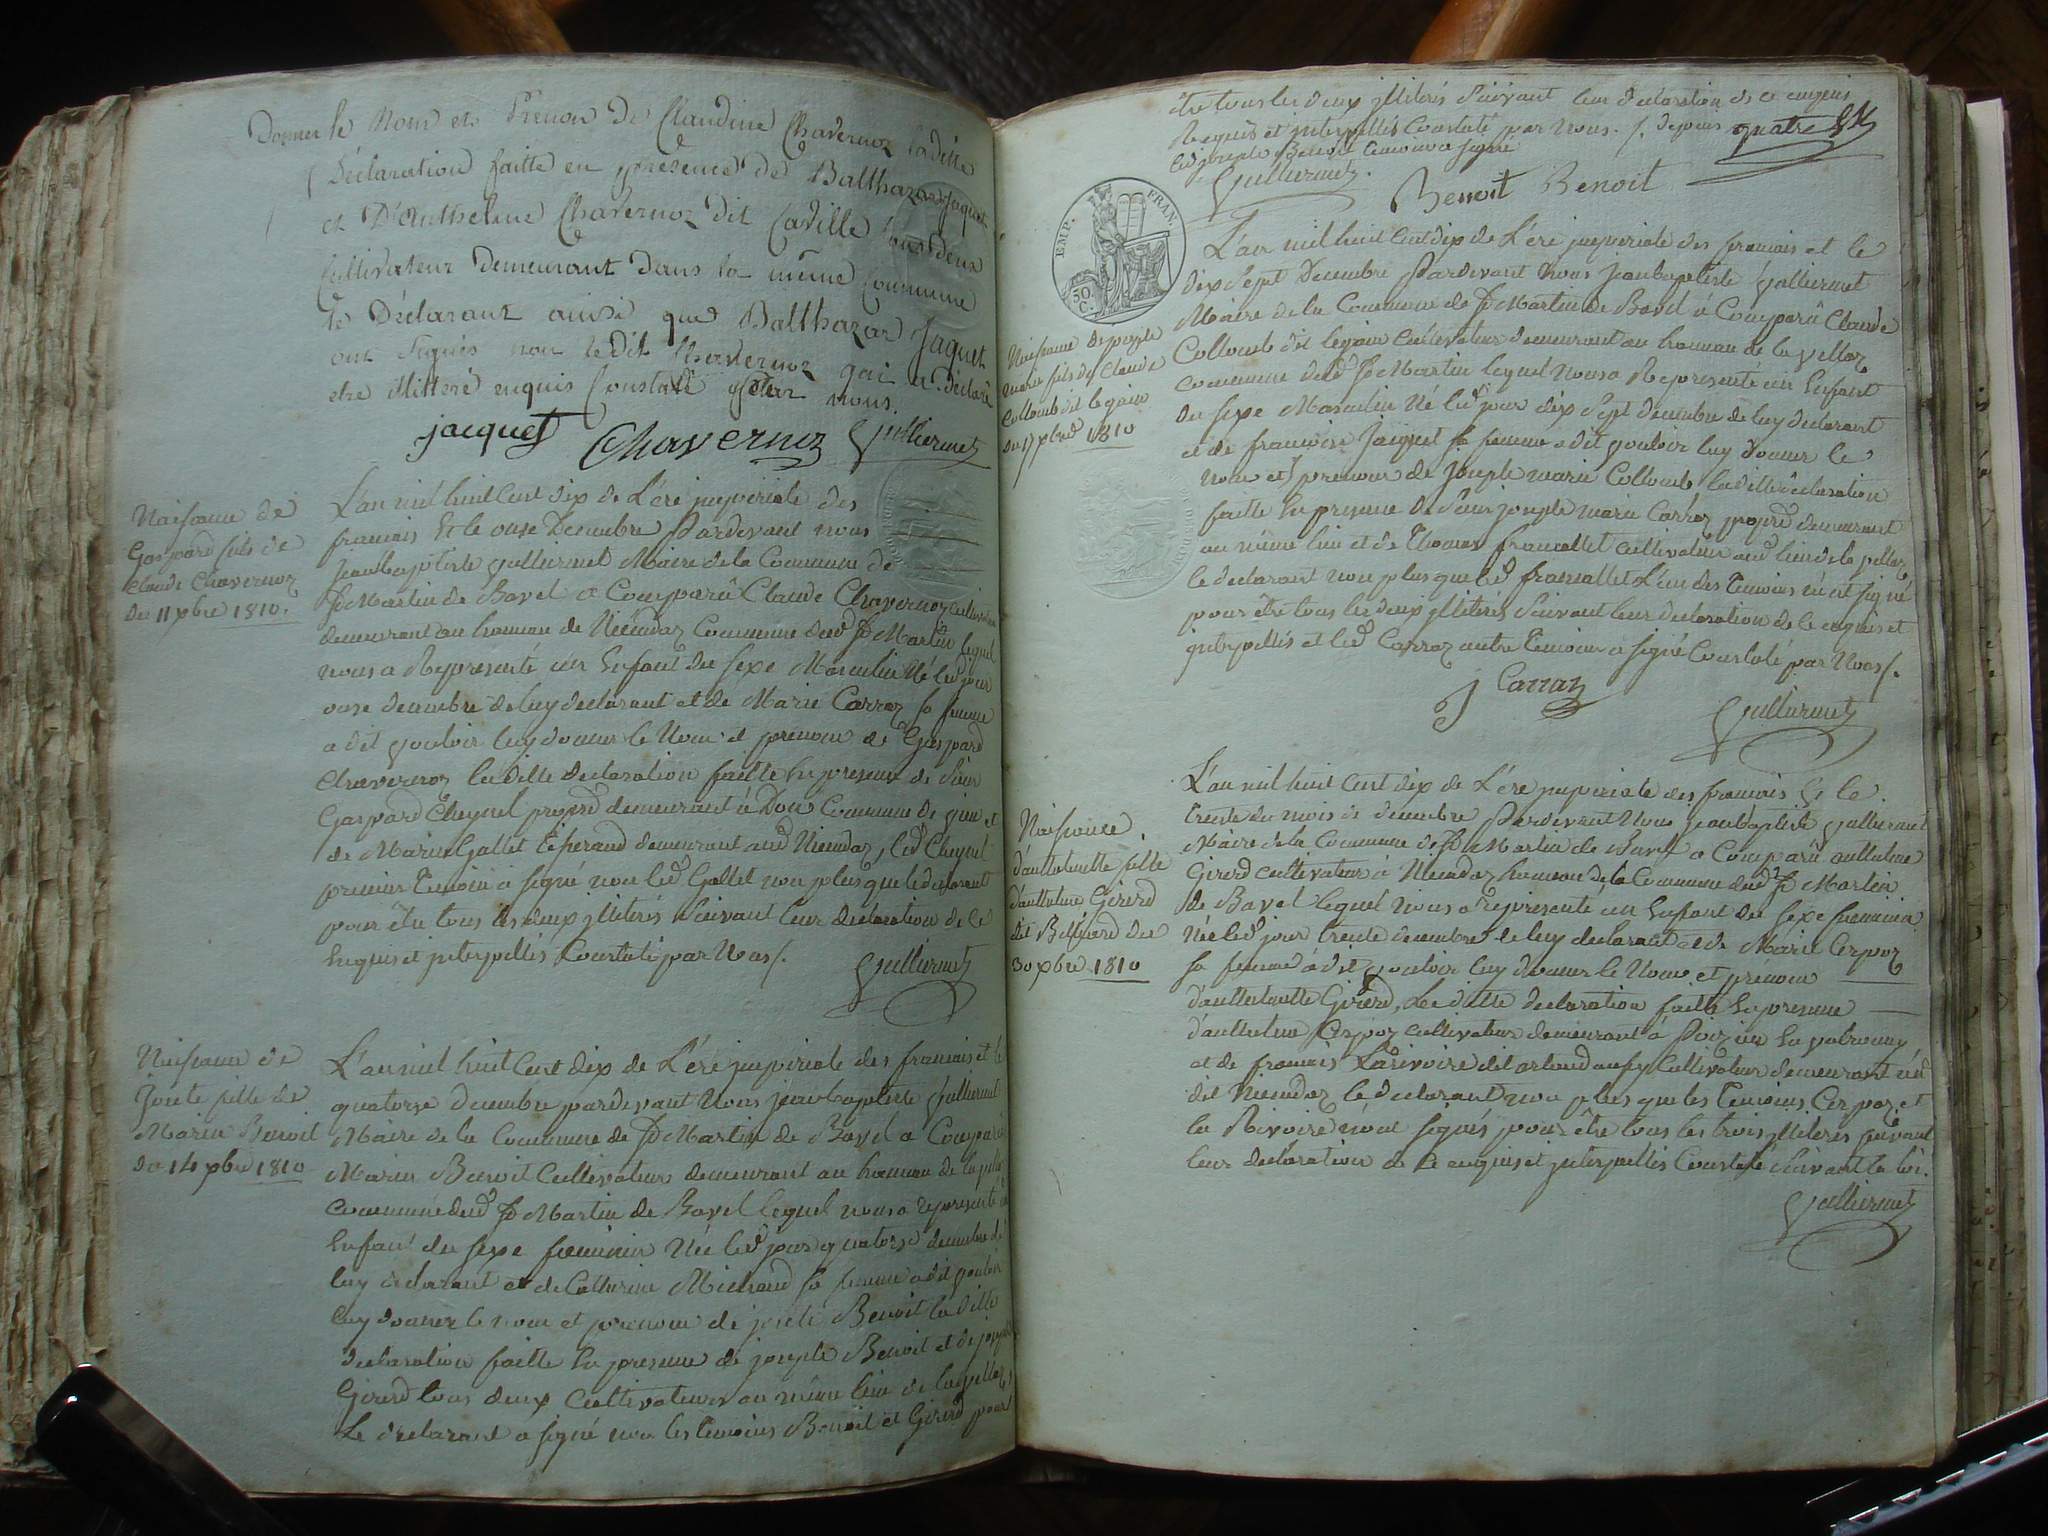 Donner le Nom et Prenom de Claudine Chavernoz laditte
Déclaration faitte en présence de Balthazard Jaquet
et D'Anthelme Chavernoz dit Caville tous deux
Cultivateur demeurant dans la même Commune
le Déclarant ainsi que Balthazar Jaquet
ont Signés non ledit Chavernoz qui a déclaré
etre illitéré enquis Constaté par nous.
jacquet Chavernoz Gulliermet
Naissance de
Gaspard fils de
Claude Chavernoz
du 11 xbre 1810.
L'an mil huit Cent dix de L'ére jmperiale des
francais Et le onze Decembre Pardevant nous
jeanbaptiste Gulliermet Maire de la Commune de
St Martin de Bavel a Comparû Claude Chavernoz
demeurant au hameau de Commune dud. St Martin lequel
nous a Représenté un Enfant du sexe Masculin Né led. jour
onze decembre de luy declarant et de Marie Carroz sa femme
a dit vouloir luy donner le Nom et prenom de Gaspard
Chavernoz laditte declaration faitte En presence de Sieur
Gaspard propre. demeurant à Commune de et
de Marin Gallet demeurant aud. led.
premier Temoin a signé non led. Gallet non plus que le declarant
pour être tous les deux jlliterés Suivant leur declaration de ce
Enquis et jnterpellés Constaté par Nous /.
Gulliermet
Naissance de
Josete fille de
Marin Benoit
du 14 xbre 1810
L'an mil huit Cent dix de L'ére jmperiale des francais et le
quatorze decembre pardevant Nous jeanbaptiste Gulliermet
Maire de la Commune de St Martin de Bavel a Comparû
Marin Benoit Cultivateur demeurant au hameau de la
Commune dud. St Martin de Bavel lequel nous a representé un
Enfant du sexe foeminin Née led. jour quatorze decembre de
luy declarant et de Catherine Michaud sa femme a dit vouloir
luy donner le nom et prenom de josete Benoit laditte
declaration faitte En presence de joseph Benoit et de joseph
Girerd tous deux Cultivateurs au même lieu de la
Le declarant a signé non les temoins Benoit et Girerd pour
être tous les deux jlliterés Suivant leur declaration de ce enquis
Requis et jnterpellés Constaté par Nous. /. depuis quatre
led. joseph Benoit temoin a signé
Gulliermet. Benoit Benoit
EMP. FRAN.
50 C.
Naissance de joseph
marie fils de Claude
Collomb dit le gain
du 17 xbre 1810
L'an mil huit Cent dix de L'ére jmperiale des francais et le
dix Sept Decembre Pardevant Nous jeanbaptiste Gulliermet
Maire de la Commune de St Martin de Bavel a Comparû Claude
Collomb dit legain Cultivateur demeurant au hameau de la vellaz
Commune dud. St Martin lequel Nous a Representé un Enfant
du sexe Masculin Né led. jour dix Sept decembre de luy declarant
et de francoise Jacquet sa femme a dit vouloir luy donner le
Nom et prenom de joseph marie Collomb laditte declaration
faitte En presence de Sieur joseph marie Carroz propre. demeurant
au même lieu et de Thomas francallet cultivateur aud. lieu de la vellaz
le declarant non plus que led. francallet L'un des Temoins n'a signé
pour être tous les deux jlliterés Suivant leur declaration de ce enquis et
jnterpellés et led. Carroz autre Temoin a signé Constaté par Nous /.
J Carraz
Gulliermet
Naissance
d'anthelmette fille
d'anthelme Girerd
dit Billiard du
30 xbre 1810
L'an mil huit Cent dix de L'ére jmperiale des francais Et le
trente du mois de decembre Pardevant Nous jeanbaptiste Gulliermet
Maire de la Commune de St Martin de Bavel a Comparû anthelme
Girerd cultivateur à hameau de la Commune dud. St Martin
de Bavel lequel nous a représenté un Enfant du sexe foeminin
Née led. jour trente decembre de luy declarant et de Marie Cerpoz
sa femme a dit vouloir luy donner le Nom et prenom
d'anthelmette Girerd, Laditte declaration faitte En presence
d'anthelme Cerpoz cultivateur demeurant à
et de francois Larivoire dit aussy Cultivateur demeurant aud.
dit le declarant non plus que les Temoins Cerpoz et
la Rivoire n'ont signés pour être tous les trois jlliterés suivant
leur declaration de ce enquis et jnterpellés Constaté suivant la loi.
Gulliermet